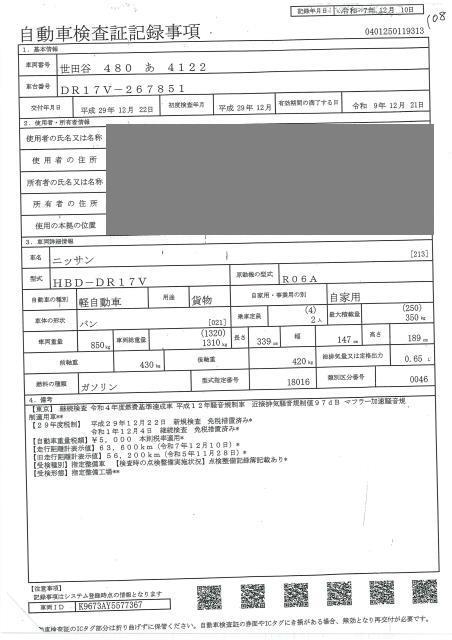 記録年月日 令和 7年 12月 10日
(08
自動車検査証記録事項
0401250119313
1. 基本情報
車両番号 世田谷 480 あ 4122
車台番号 DR17V-267851
交付年月日 平成 29年 12月 22日 初度検査年月 平成 29年 12月 有効期間の満了する日 令和 9年 12月 21日
2. 使用者・所有者情報
使用者の氏名又は名称
使用者の住所
所有者の氏名又は名称
所有者の住所
使用の本拠の位置
3. 車両詳細情報
車名 ニッサン [213]
型式 HBD-DR17V 原動機の型式 R06A
自動車の種別 軽自動車 用途 貨物 自家用・事業用の別 自家用
車体の形状 バン [021] 乗車定員 (4) 2人 最大積載量 (250) 350kg
車両重量 850kg 車両総重量 (1320) 1310kg 長さ 339cm 幅 147cm 高さ 189cm
前軸重 430kg 後軸重 420kg 総排気量又は定格出力 0.65 L
燃料の種類 ガソリン 型式指定番号 18016 類別区分番号 0046
4. 備考
【東京】 継続検査 令和4年度燃費基準達成車 平成12年騒音規制車 近接排気騒音規制値97dB マフラー加速騒音規
制適用車**
【29年度税制】 平成29年12月22日 新規検査 免税措置済み*
令和1年12月4日 継続検査 免税措置済み*
【自動車重量税額】¥5,000 本則税率適用*
【走行距離計表示値】63,600km(令和7年12月10日)*
【旧走行距離計表示値】56,200km(令和5年11月28日)*
【受検種別】指定整備車 【検査時の点検整備実施状況】点検整備記録簿記載あり*
【受検形態】指定整備工場**
【注意事項】
記録事項はシステム登録時点の情報となります
車両ID K9673AY5577367
自動車検査証のICタグ部分は折り曲げずに保管ください。自動車検査証の券面やICタグに合損がある場合、無効となり再交付が必要です。